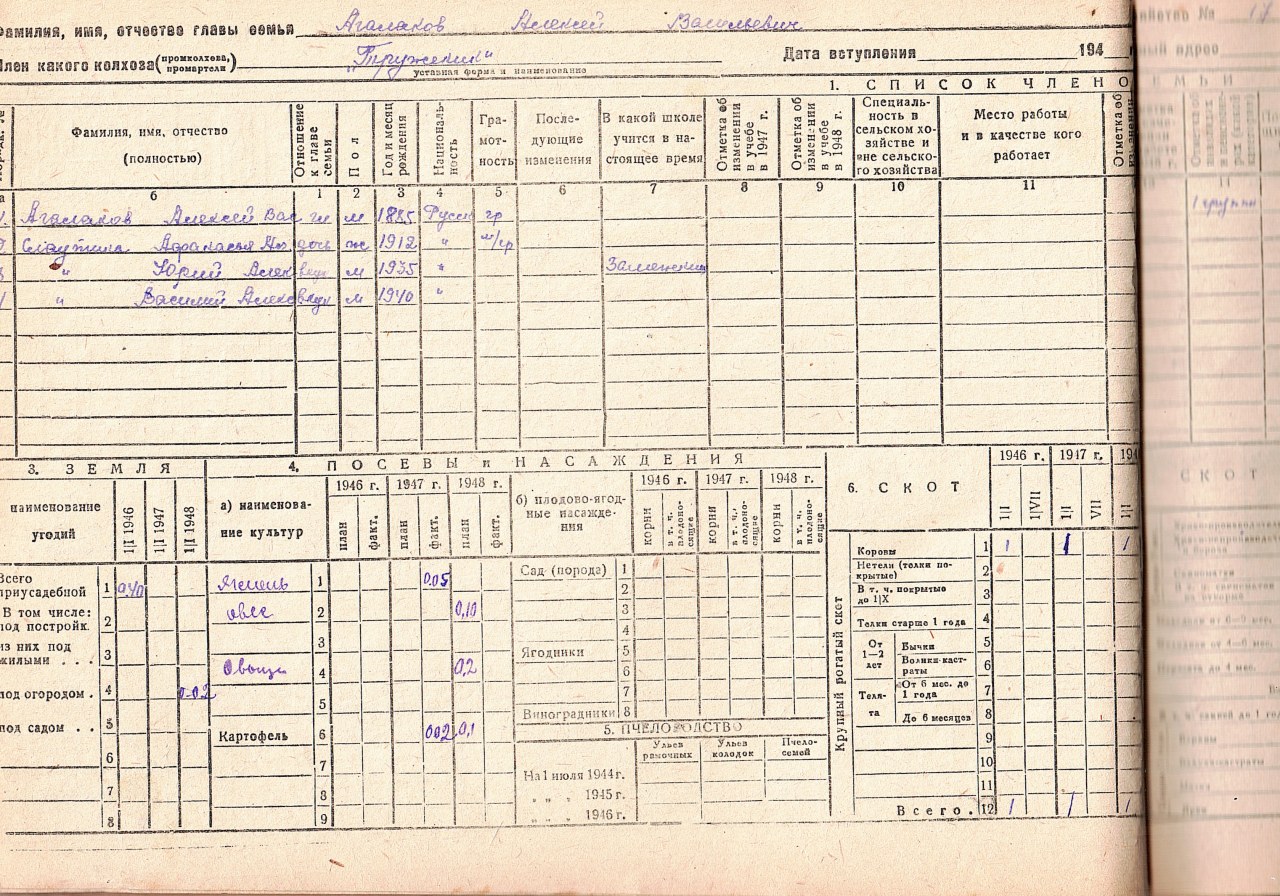 Фамилия, имя, отчество главы семьи Агалаков Алексей Васильевич
Член какого колхоза (промколхоза, промартели) „Труженик“ Дата вступления 194
уставная форма и наименование
1. СПИСОК ЧЛЕНО
Фамилия, имя, отчество (полностью)
Отношение к главе семьи
Пол
Год и месяц рождения
Националь-ность
Гра-мот-ность
После-дующие изменения
В какой школе учится в на-стоящее время
Отметка об изменении в учебе в 1947 г.
Отметка об изменении в учебе в 1948 г.
Специаль-ность в сельском хо-зяйстве и вне сельско-го хозяйства
Место работы и в качестве кого работает
Отметка об
а б 1 2 3 4 5 6 7 8 9 10 11
Агалаков Алексей Вас гл м 1885 Русск гр
Афанасья дочь ж 1912 " м/гр
" Юрий Алек внук м 1935 "
" Василий Алекс внук м 1940 "
3. ЗЕМЛЯ
наименование угодий
1|I 1946 1|I 1947 1|I 1948
Всего приусадебной 1 0,40
В том числе: под постройк. 2
из них под жилыми . . . 3
под огородом . 4 0-02
под садом . . 5
6
7
8
4. ПОСЕВЫ и НАСАЖДЕНИЯ
а) наименова-ние культур
1946 г. 1947 г. 1948 г.
план факт. план факт. план факт.
Ячмень 1 0,05
овес 2 0,10
3
Овощи 4 0,2
5
Картофель 6 002 0,1
7
8
9
б) плодово-ягод-ные насажде-ния
1946 г. 1947 г. 1948 г.
корни в т. ч. плодоно-сящие корни в т. ч. плодоно-сящие корни в т. ч. плодоно-сящие
Сад (порода) 1
2
3
4
Ягодники 5
6
7
Виноградники 8
5. ПЧЕЛОВОДСТВО
Ульев рамочных Ульев колодок Пчело-семей
На 1 июля 1944 г.
" " " 1945 г.
" " " 1946 г.
6. СКОТ
1946 г. 1947 г. 194
1|I 1|VII 1|I VII 1|I
Крупный рогатый скот
Коровы 1 1 1 1
Нетели (телки по-крытые) 2
В т. ч. покрытые до 1|X 3
Телки старше 1 года 4
От 1—2 лет Бычки 5
Волики-каст-раты 6
Теля-та От 6 мес. до 1 года 7
До 6 месяцев 8
9
10
11
Всего. 12 1 1 1
яйство № 17
ный адрес
СКОТ